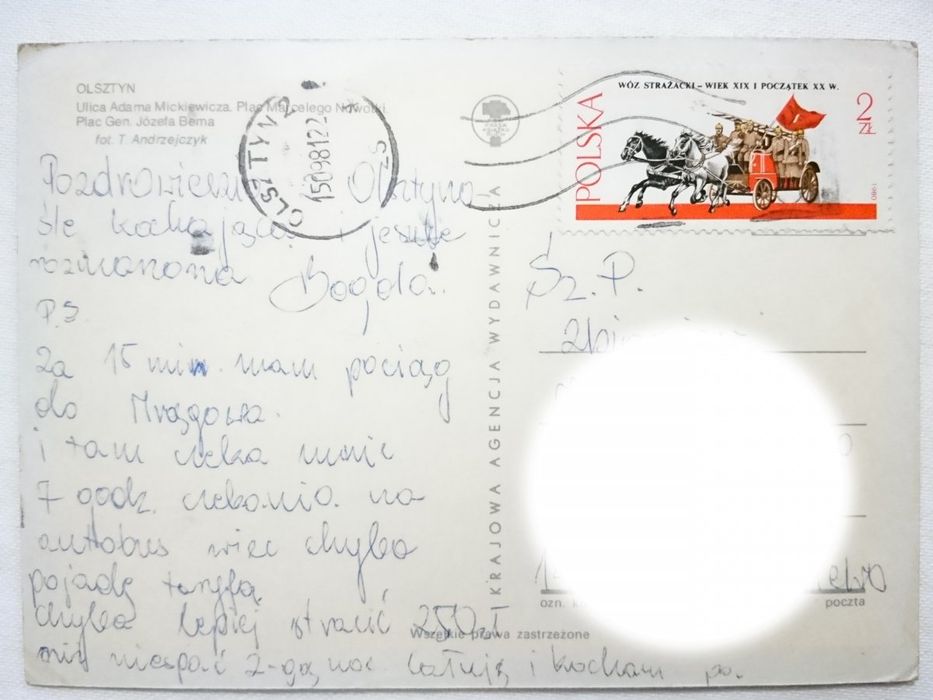 OLSZTYN
Ulica Adama Mickiewicza. Plac Marcelego Nowotki
Plac Gen. Józefa Bema
fot. T. Andrzejczyk
Pozdrowienia Olsztyna
śle kochająca i jeszcze
Bogda.
P.S
Za 15 min. mam pociąg
do Mrągowa.
i tam czeka mnie
7 godz. czekania na
autobus więc chyba
pojadę
chyba lepiej stracić 250 zł
niż niespać 2-gą noc całuję i kocham pa.
KRAJOWA AGENCJA WYDAWNICZA
OLSZTYN 2
15.09.81 22
WÓZ STRAŻACKI – WIEK XIX I POCZĄTEK XX W.
POLSKA
2 ZŁ
1980
Sz. P.
poczta
Wszelkie prawa zastrzeżone